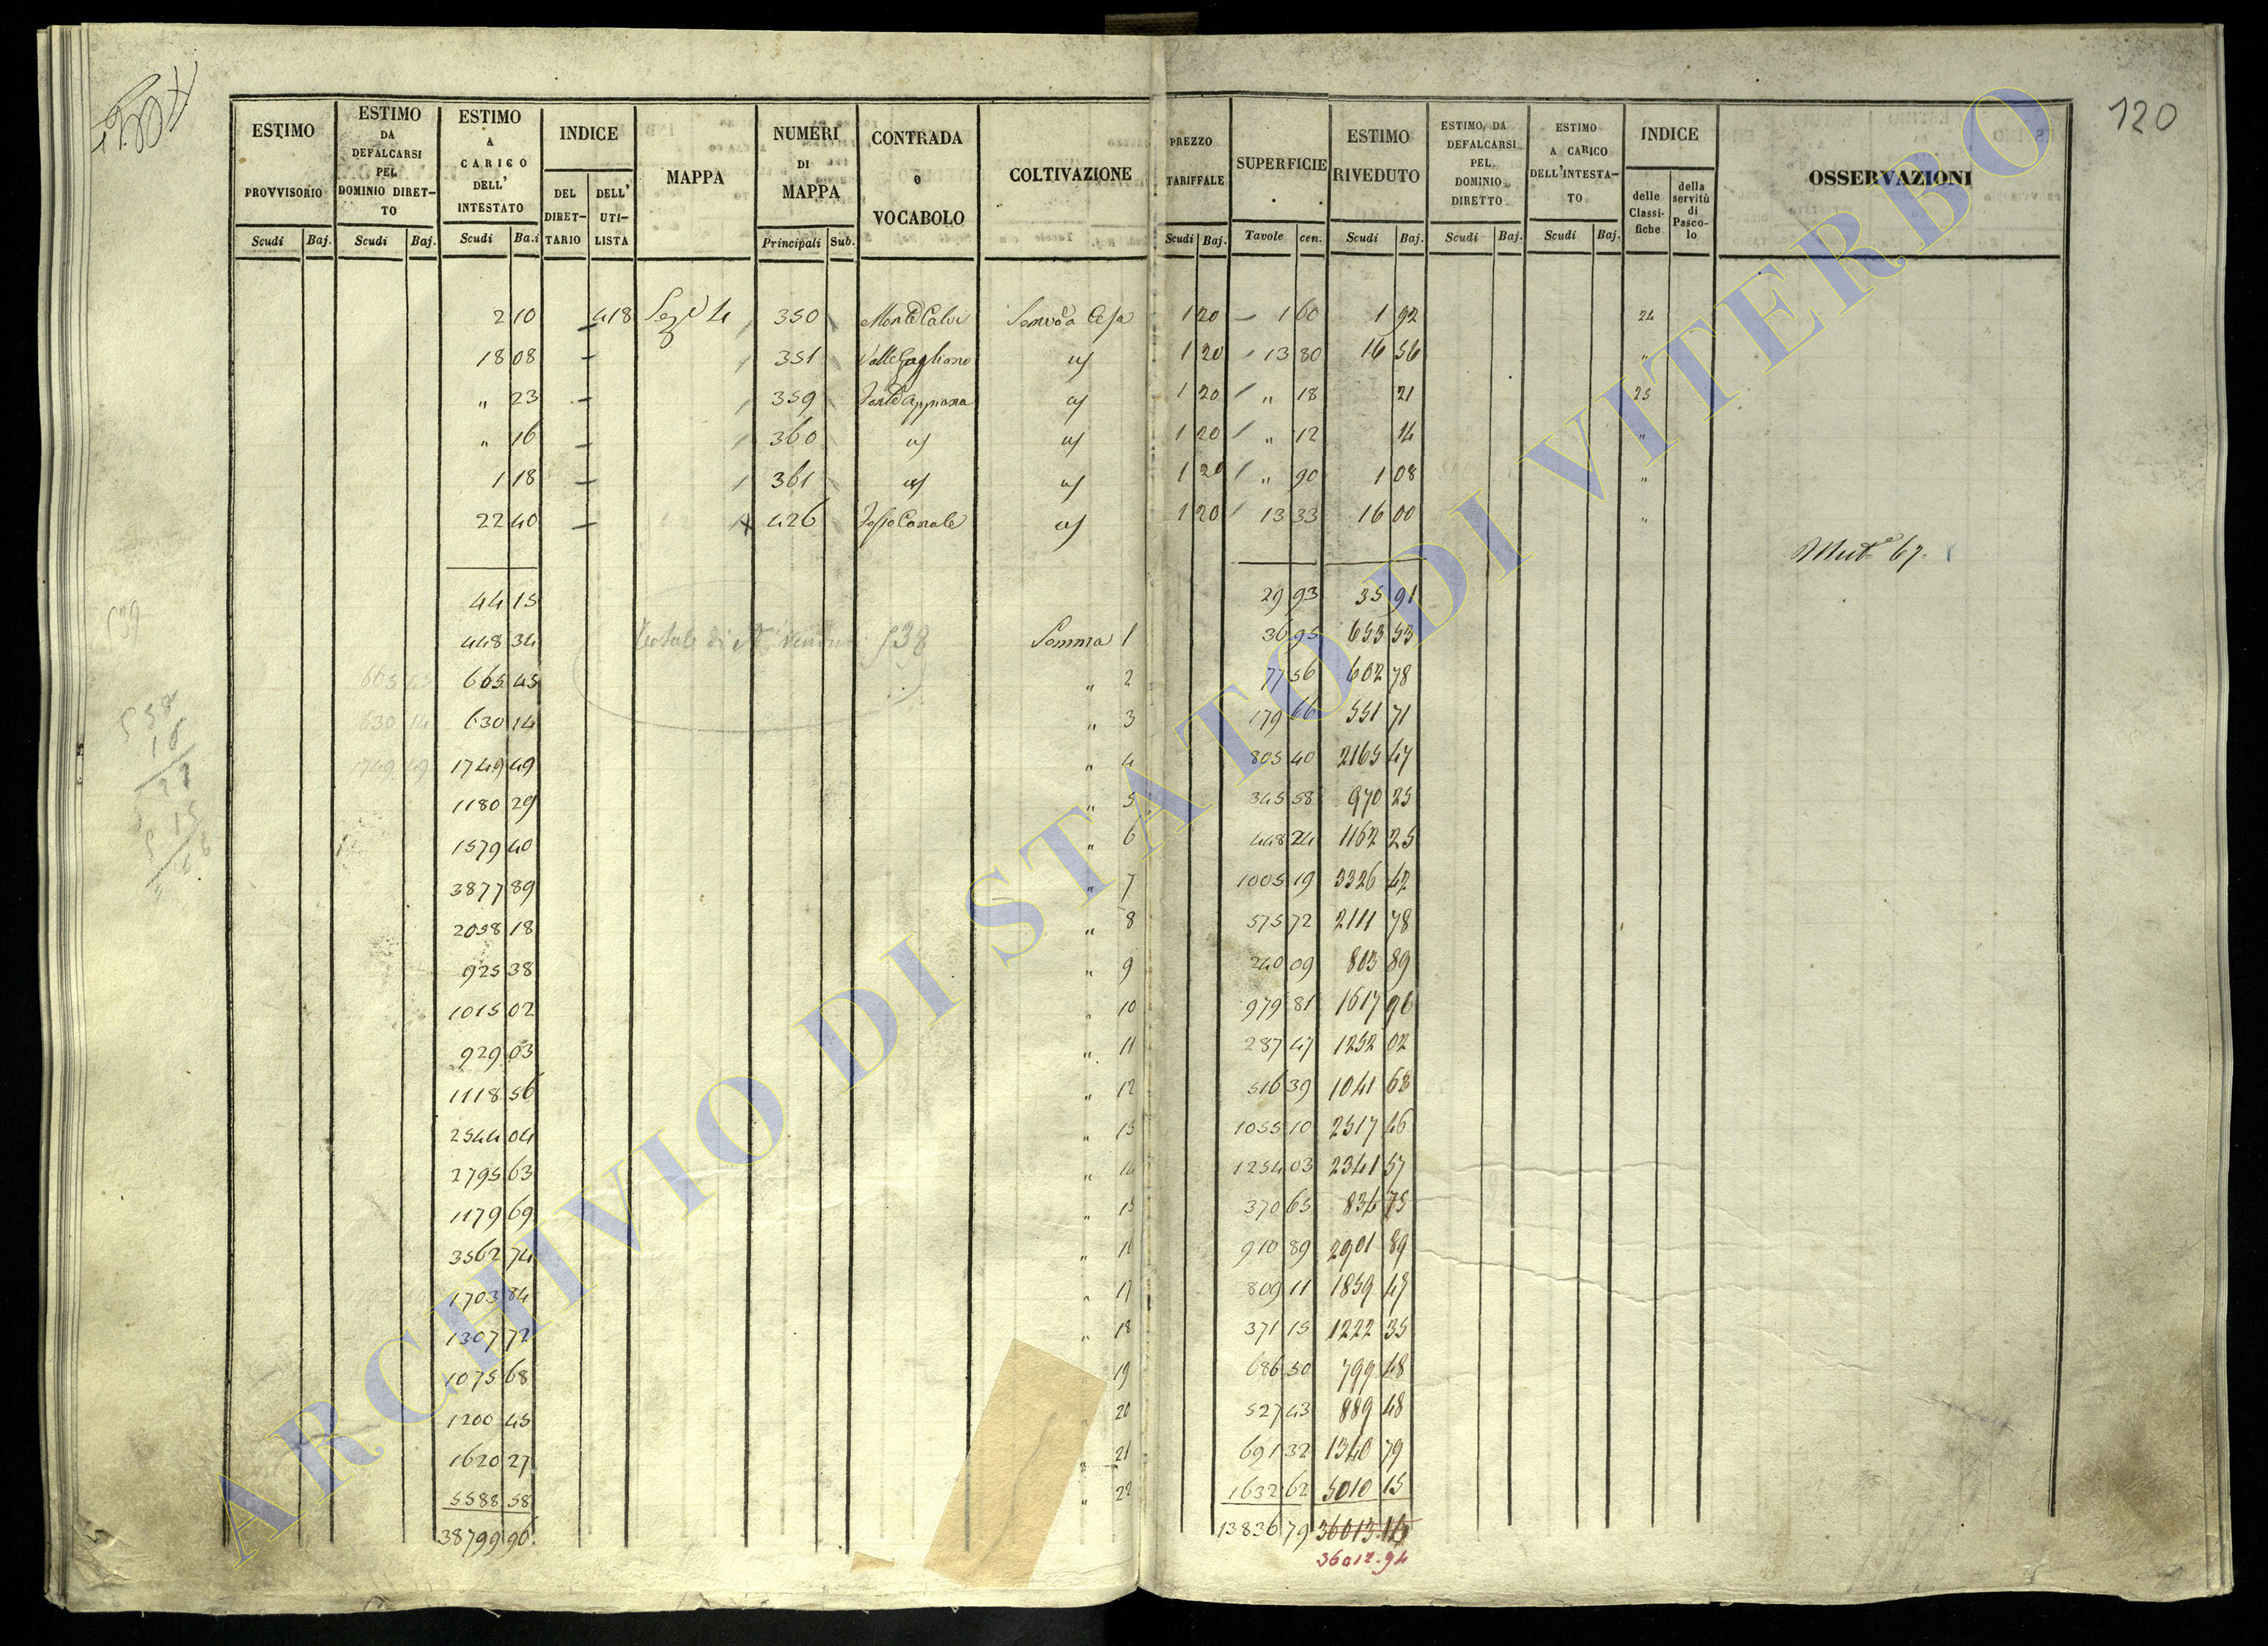 120
ESTIMO PROVVISORIO
ESTIMO DA DEFALCARSI PEL DOMINIO DIRET-TO
ESTIMO A CARICO DELL' INTESTATO
INDICE
DEL DIRET-TARIO
DELL' UTI-LISTA
MAPPA
NUMERI DI MAPPA
CONTRADA o VOCABOLO
COLTIVAZIONE
PREZZO TARIFFALE
SUPERFICIE
ESTIMO RIVEDUTO
ESTIMO DA DEFALCARSI PEL DOMINIO DIRETTO
ESTIMO A CARICO DELL'INTESTA-TO
INDICE
delle Classi-fiche
della servitù di Pasco-lo
OSSERVAZIONI
Scudi Baj. Scudi Baj. Scudi Ba.i Principali Sub. Scudi Baj. Tavole cen. Scudi Baj. Scudi Baj. Scudi Baj.
2 10 418 350 Monte Calvi 1 20 1 60 1 92 24
18 08 351 Valle Gagliano 1 20 13 80 16 56 "
" 23 359 1 20 " 18 21 25
" 16 360 1 20 " 12 14 "
1 18 361 1 20 " 90 1 08 "
22 40 426 Fosso Canale 1 20 13 33 16 00 "
Mut.e 67.
44 15 29 93 35 91
448 34 538 Somma 1 36 95 653 53
665 45 665 45 " 2 77 56 602 78
630 14 630 14 " 3 179 66 551 71
1749 49 1749 49 " 4 805 40 2165 47
1180 29 " 5 345 58 970 25
1579 40 " 6 448 24 1162 25
3877 89 " 7 1005 19 3326 42
2058 18 " 8 575 72 2111 78
925 38 " 9 240 09 803 89
1015 02 " 10 979 81 1617 96
929 03 " 11 287 47 1252 02
1118 56 " 12 516 39 1041 68
2544 04 " 13 1055 10 2517 46
2795 63 " 14 1254 03 2341 57
1179 69 " 15 370 65 834 75
3562 74 " 16 910 89 2901 89
1703 84 " 17 809 11 1859 47
1307 72 " 18 371 15 1222 35
1075 68 19 686 50 799 48
1200 45 " 20 527 43 889 48
1620 27 " 21 691 32 1340 79
5588 58 " 22 1632 62 5010 15
38799 90 13836 79 36013.16
36012.94
ARCHIVIO DI STATO DI VITERBO